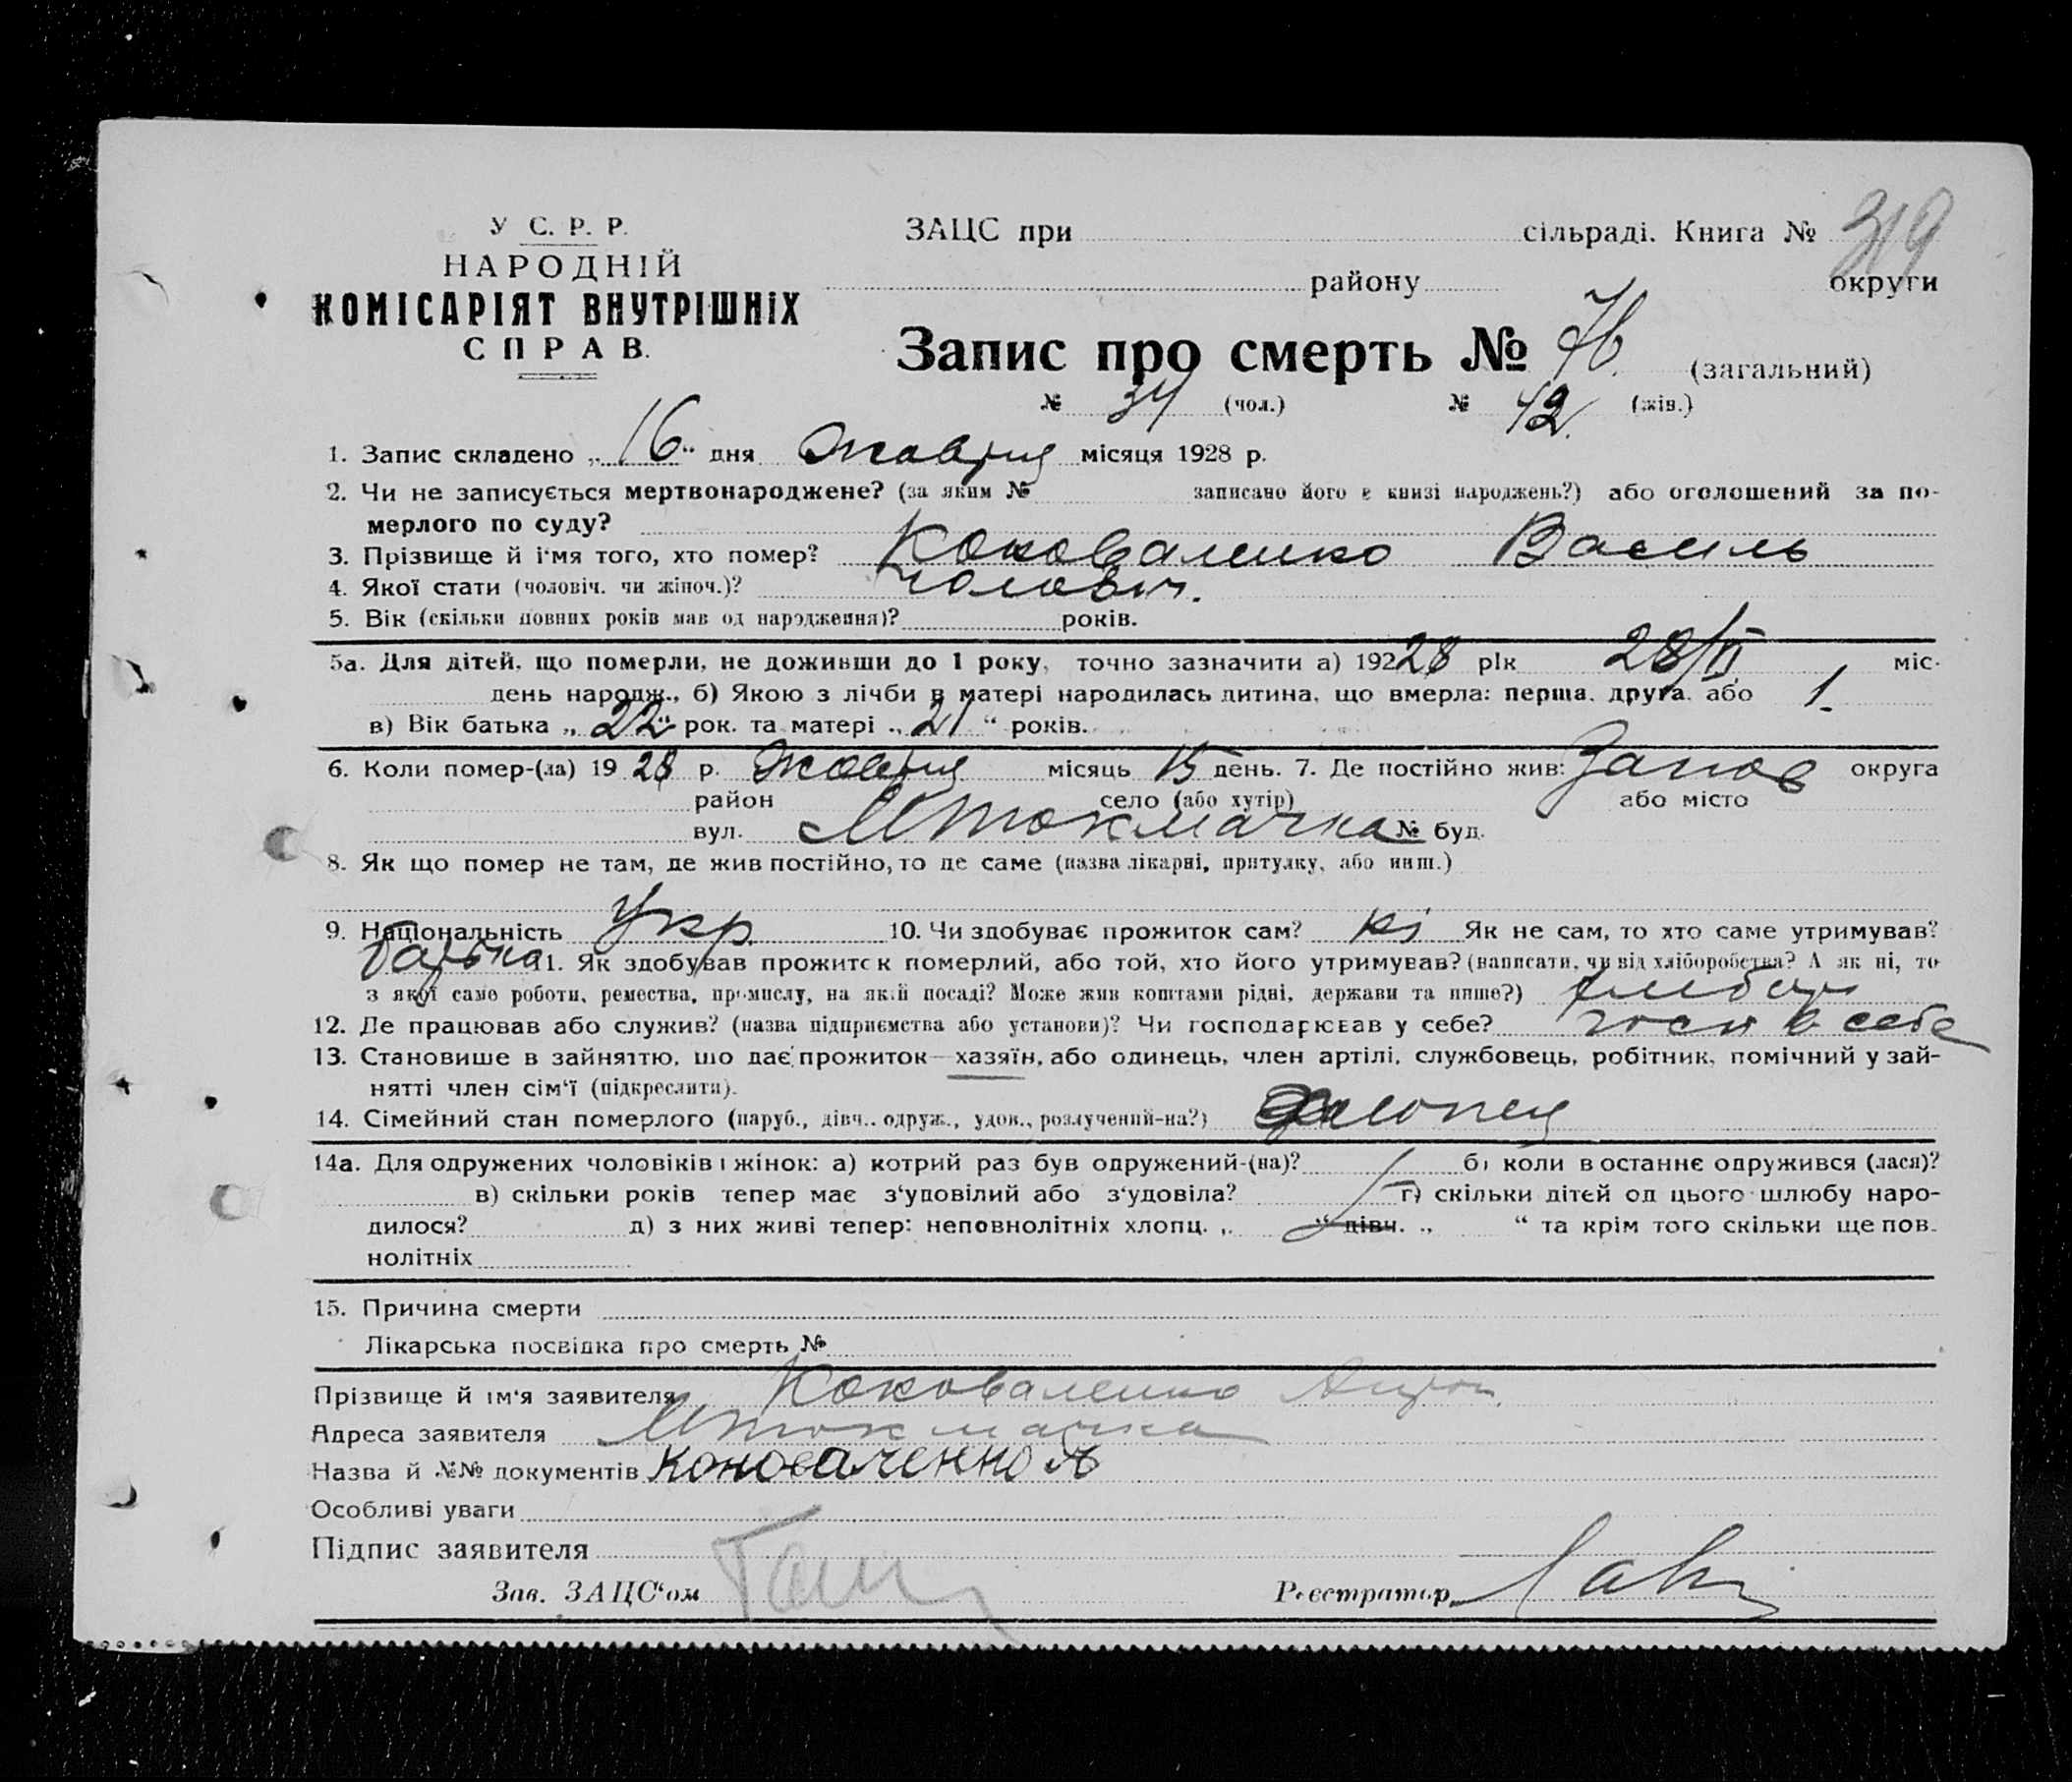 У С. Р. Р.
НАРОДНІЙ
КОМІСАРІЯТ ВНУТРІШНІХ
СПРАВ.
ЗАЦС при сільраді. Книга № 319
району округи
Запис про смерть № 76. (загальний)
№ 34 (чол.) № 42. (жів.)
1. Запис складено „16“ дня Жовтня місяця 1928 р.
2. Чи не записується мертвонароджене? (за яким № записано його в книзі народжень?) або оголошений за по-
мерлого по суду?
3. Прізвище й і'мя того, хто помер? Коноваленко Василь
4. Якої стати (чоловіч. чи жіноч.)? чоловіч.
5. Вік (скільки повних років мав од народження)? років.
5а. Для дітей, що померли, не доживши до 1 року, точно зазначити а) 19228 рік 28/II міс.
день народж., б) Якою з лічби в матері народилась дитина, що вмерла: перша, друга, або 1.
в) Вік батька „22“ рок. та матері „21“ років.
6. Коли помер-(ла) 1928 р. Жовтня місяць 15 день. 7. Де постійно жив: Запов округа
район село (або хутір) або місто
вул. МТокмачка № буд.
8. Як що помер не там, де жив постійно, то де саме (назва лікарні, притулку, або инш.)
9. Національність Укр. 10. Чи здобуває прожиток сам? ні Як не сам, то хто саме утримував?
батько 11. Як здобував прожиток померлий, або той, хто його утримував? (написати, чи від хліборобства? А як ні, то
з якої саме роботи, ремества, промислу, на якій посаді? Може жив коштами рідні, держави та инше?) хлібор
12. Де працював або служив? (назва підприємства або установи)? Чи господарював у себе? госп в себе
13. Становище в зайняттю, що дає прожиток—хазяїн, або одинець, член артілі, службовець, робітник, помічний у зай-
нятті член сім'ї (підкреслити).
14. Сімейний стан померлого (паруб., дівч., одруж., удов., розлучений-на?) Хлопец
14а. Для одружених чоловіків і жінок: а) котрий раз був одружений-(на)? б) коли в останнє одружився (лася)?
в) скільки років тепер має з'удовілий або з'удовіла? г) скільки дітей од цього шлюбу наро-
дилося? д) з них живі тепер: неповнолітніх хлопц. „ “ дівч. „ “ та крім того скільки ще пов-
нолітніх
15. Причина смерти
Лікарська посвідка про смерть №
Прізвище й ім'я заявителя Коноваленко
Адреса заявителя МТокмачка
Назва й №№ документів Коноваленко
Особливі уваги
Підпис заявителя
Зав. ЗАЦС'ом
Реєстратор